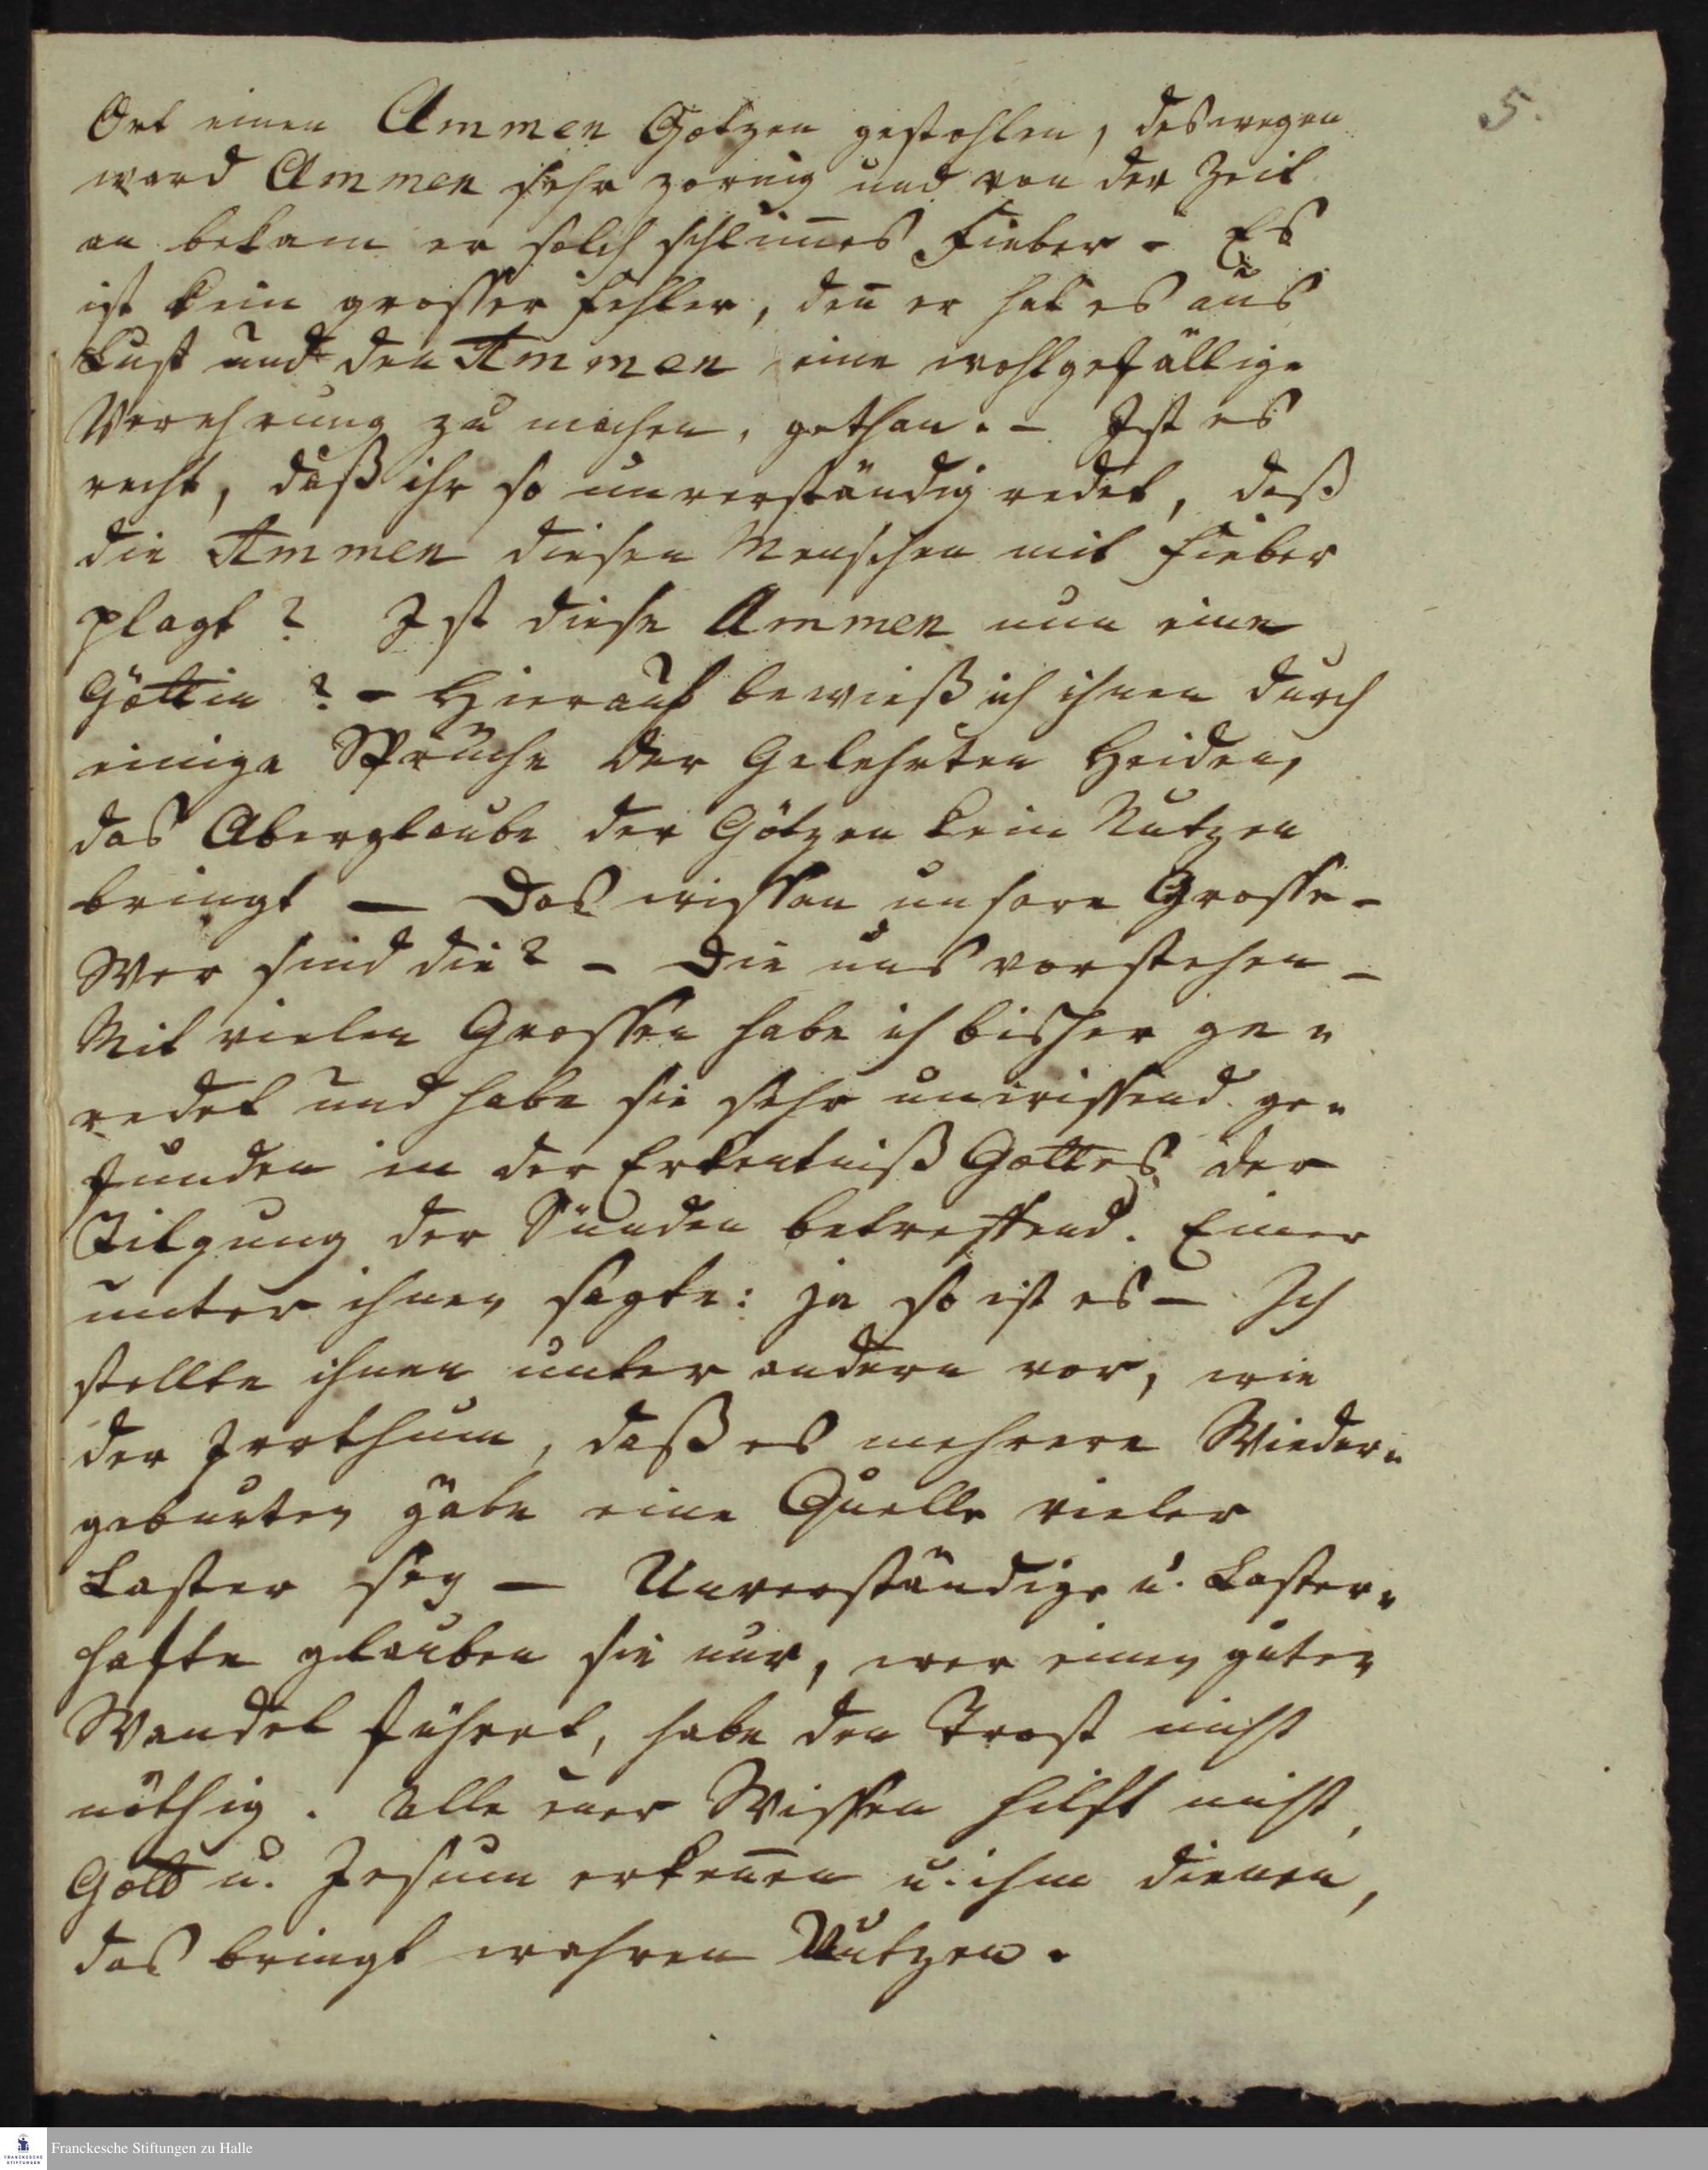 5.
Ort einen Ammen Götzen gestohlen, deswegen
ward Ammen sehr zornig und von der Zeit
an bekam er solch schlim̅es Fieber - Es
ist kein grosser Fehler, den̅ er hat es aus
Lust und den Ammen eine wohlgefällige
Verehrung zu machen, gethan. - Ist es
recht, daß ihr so unverständig redet, daß
die Ammen diesen Menschen mit Fieber
plagt? Ist diese Ammen nun eine
Göttin? - Hierauf bewieß ich ihnen durch
einige Sprüche der Gelehrten Heiden,
das Aberglaube der Götzen kein Nutzen
bringt — Das wissen unsere Grosse -
Wer sind die? - Die uns vorstehen -
Mit vielen Grossen habe ich bisher ge=
redet und habe sie sehr unwissend ge=
funden in der Erkentniß Gottes, der
Tilgung der Sünden betreffend. Einer
unter ihnen sagte: ja so ist es — Ich
stellte ihnen unter andern vor, wie
der Irrthum, daß es mehrere Wieder=
geburten gäbe eine Quelle vieler
Laster sey — Unverständige u. Laster=
hafte glauben sie nur, wer einen guten
Wandel führet, habe den Trost nicht
nöthig. Alle euer Wissen hilft nicht,
Gott u. Jesum erken̅en u. ihm dienen,
das bringt wahren Nutzen.
Franckesche Stiftungen zu Halle
FRANCKESCHE STIFTUNGEN